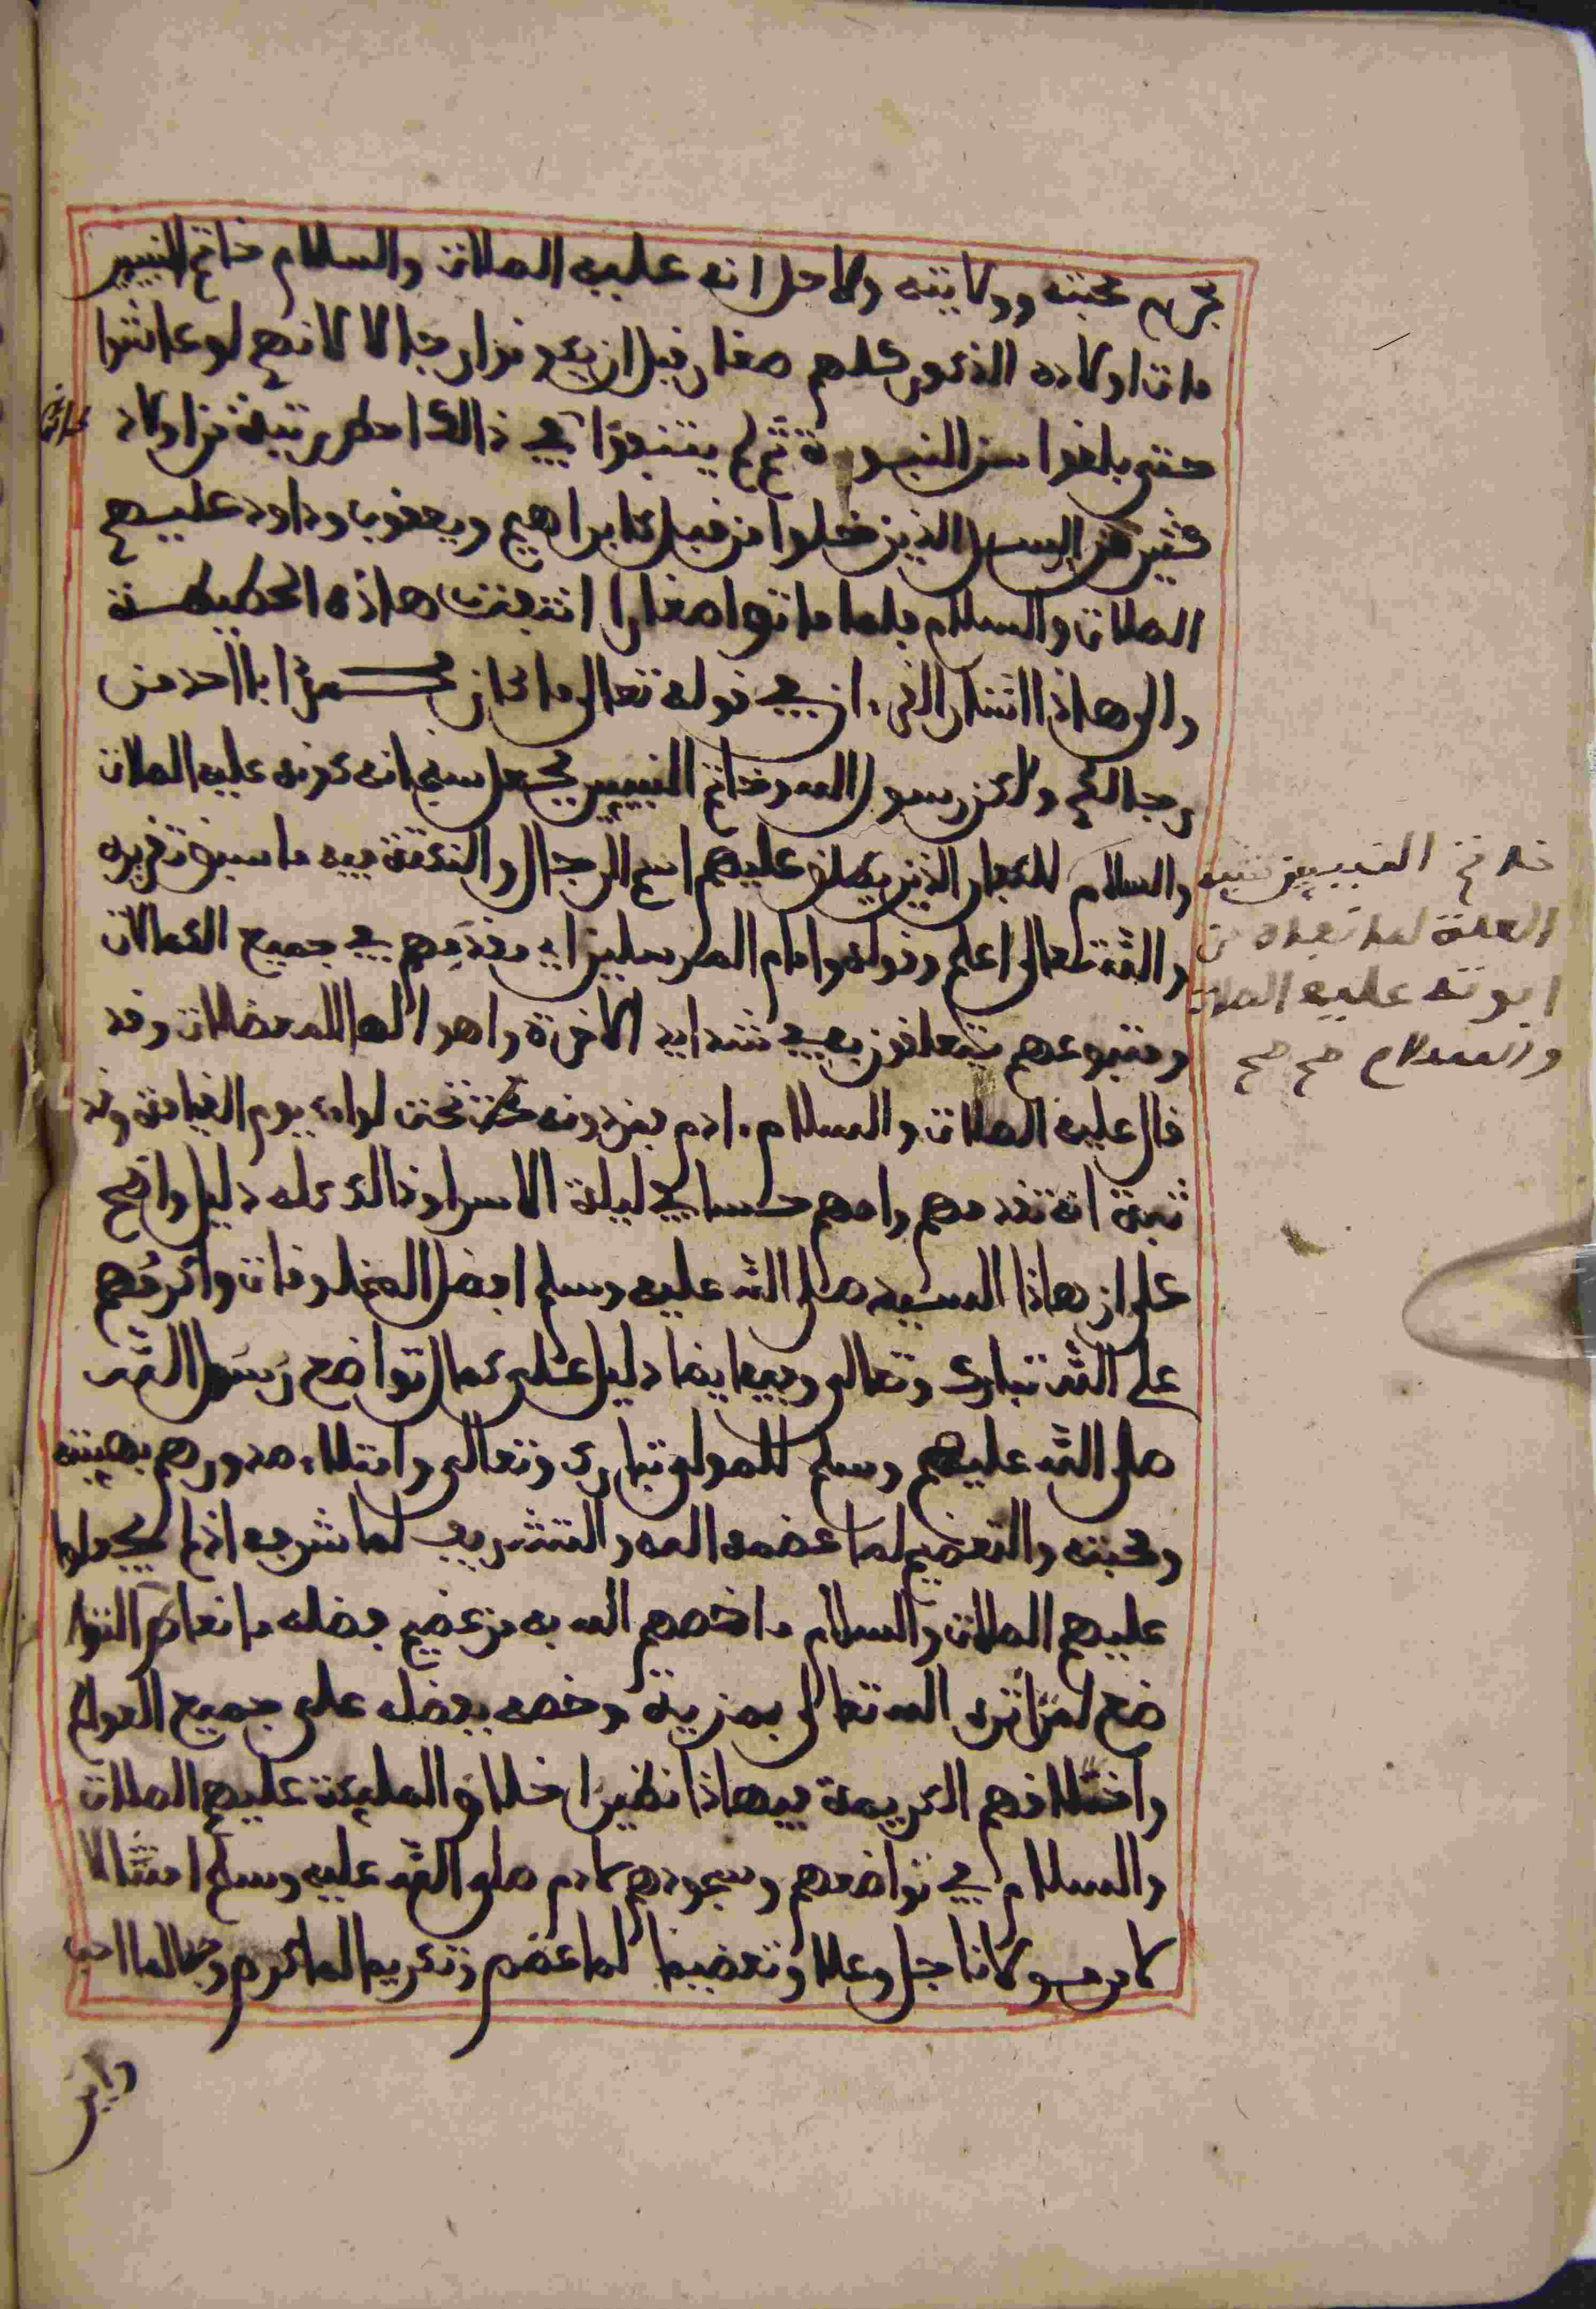 محبته وولايته ولاجل انه عليه الصلاة والسلام خاتم النبيين
مات اولاده الذكور كلهم صغار قبل ان يكونوا رجالا لانهم لو عاشوا
حتى بلغوا سن النبوءة ثم لم يتنبئوا في ذالك احطر رتبة من اولاد
كثير من الرسل الذين خلوا من قبل كابراهيم ويعقوب وداود عليهم
الصلاة والسلام فلما ماتوا صغارا انتفت هاذه الحطيطة
والى هاذا اشار القرءان في قوله تعالى ما كان محمد ابا احد من
رجالكم ولاكن رسول الله وخاتم النبيين فجعل سبحانه كونه عليه الصلاة
والسلام للكبار الذين يطلق عليهم اسم الرجال والنكتة فيه ما سبق تقريره
والله تعالى اعلم وقوله وامام المرسلين اي مقدمهم في جميع الكمالات
ومتبوعهم يتعلقون به في شدايد الاخرة واهوالها المعضلات وقد
قال عليه الصلاة والسلام ءادم فمن دونه تحت لواءي يوم القيامة وقد
ثبت انه تقدمهم وامهم حسا في ليلة الاسرا وذالك كله دليل واضح
على ان هاذا السيد صلى الله عليه وسلم افضل المخلوقات واكرمهم
على الله تبارك وتعالى وفيه ايضا دليل على كمال تواضع رسول الله
صلى الله عليهم وسلم للمولى تبارك وتعالى وامتلاء صدورهم بهيبته
ومحبته والتعضيم لما عضمه الله والتشريف لما شرفه اذ لم يجعلوا
عليهم الصلاة والسلام ما خصهم الله به من عضيم فضله مانعا من التوا
ضع لمن اثره الله تعالى بمزية وخصه بفضله على جميع العوالم
واخلاقهم الكريمة في هاذا نظير اخلاق المليكة عليهم الصلاة
والسلام في تواضعهم وسجودهم لادم صلى الله عليه وسلم امتثالا
لامر مولانا جل وعلا وتعضيما لما عضم وتكريما لما كرم وحبا لما احب
خاتم النبيين تنبيه
العلة لما بعده من
ابوته عليه الصلاة
والسلام صح صح